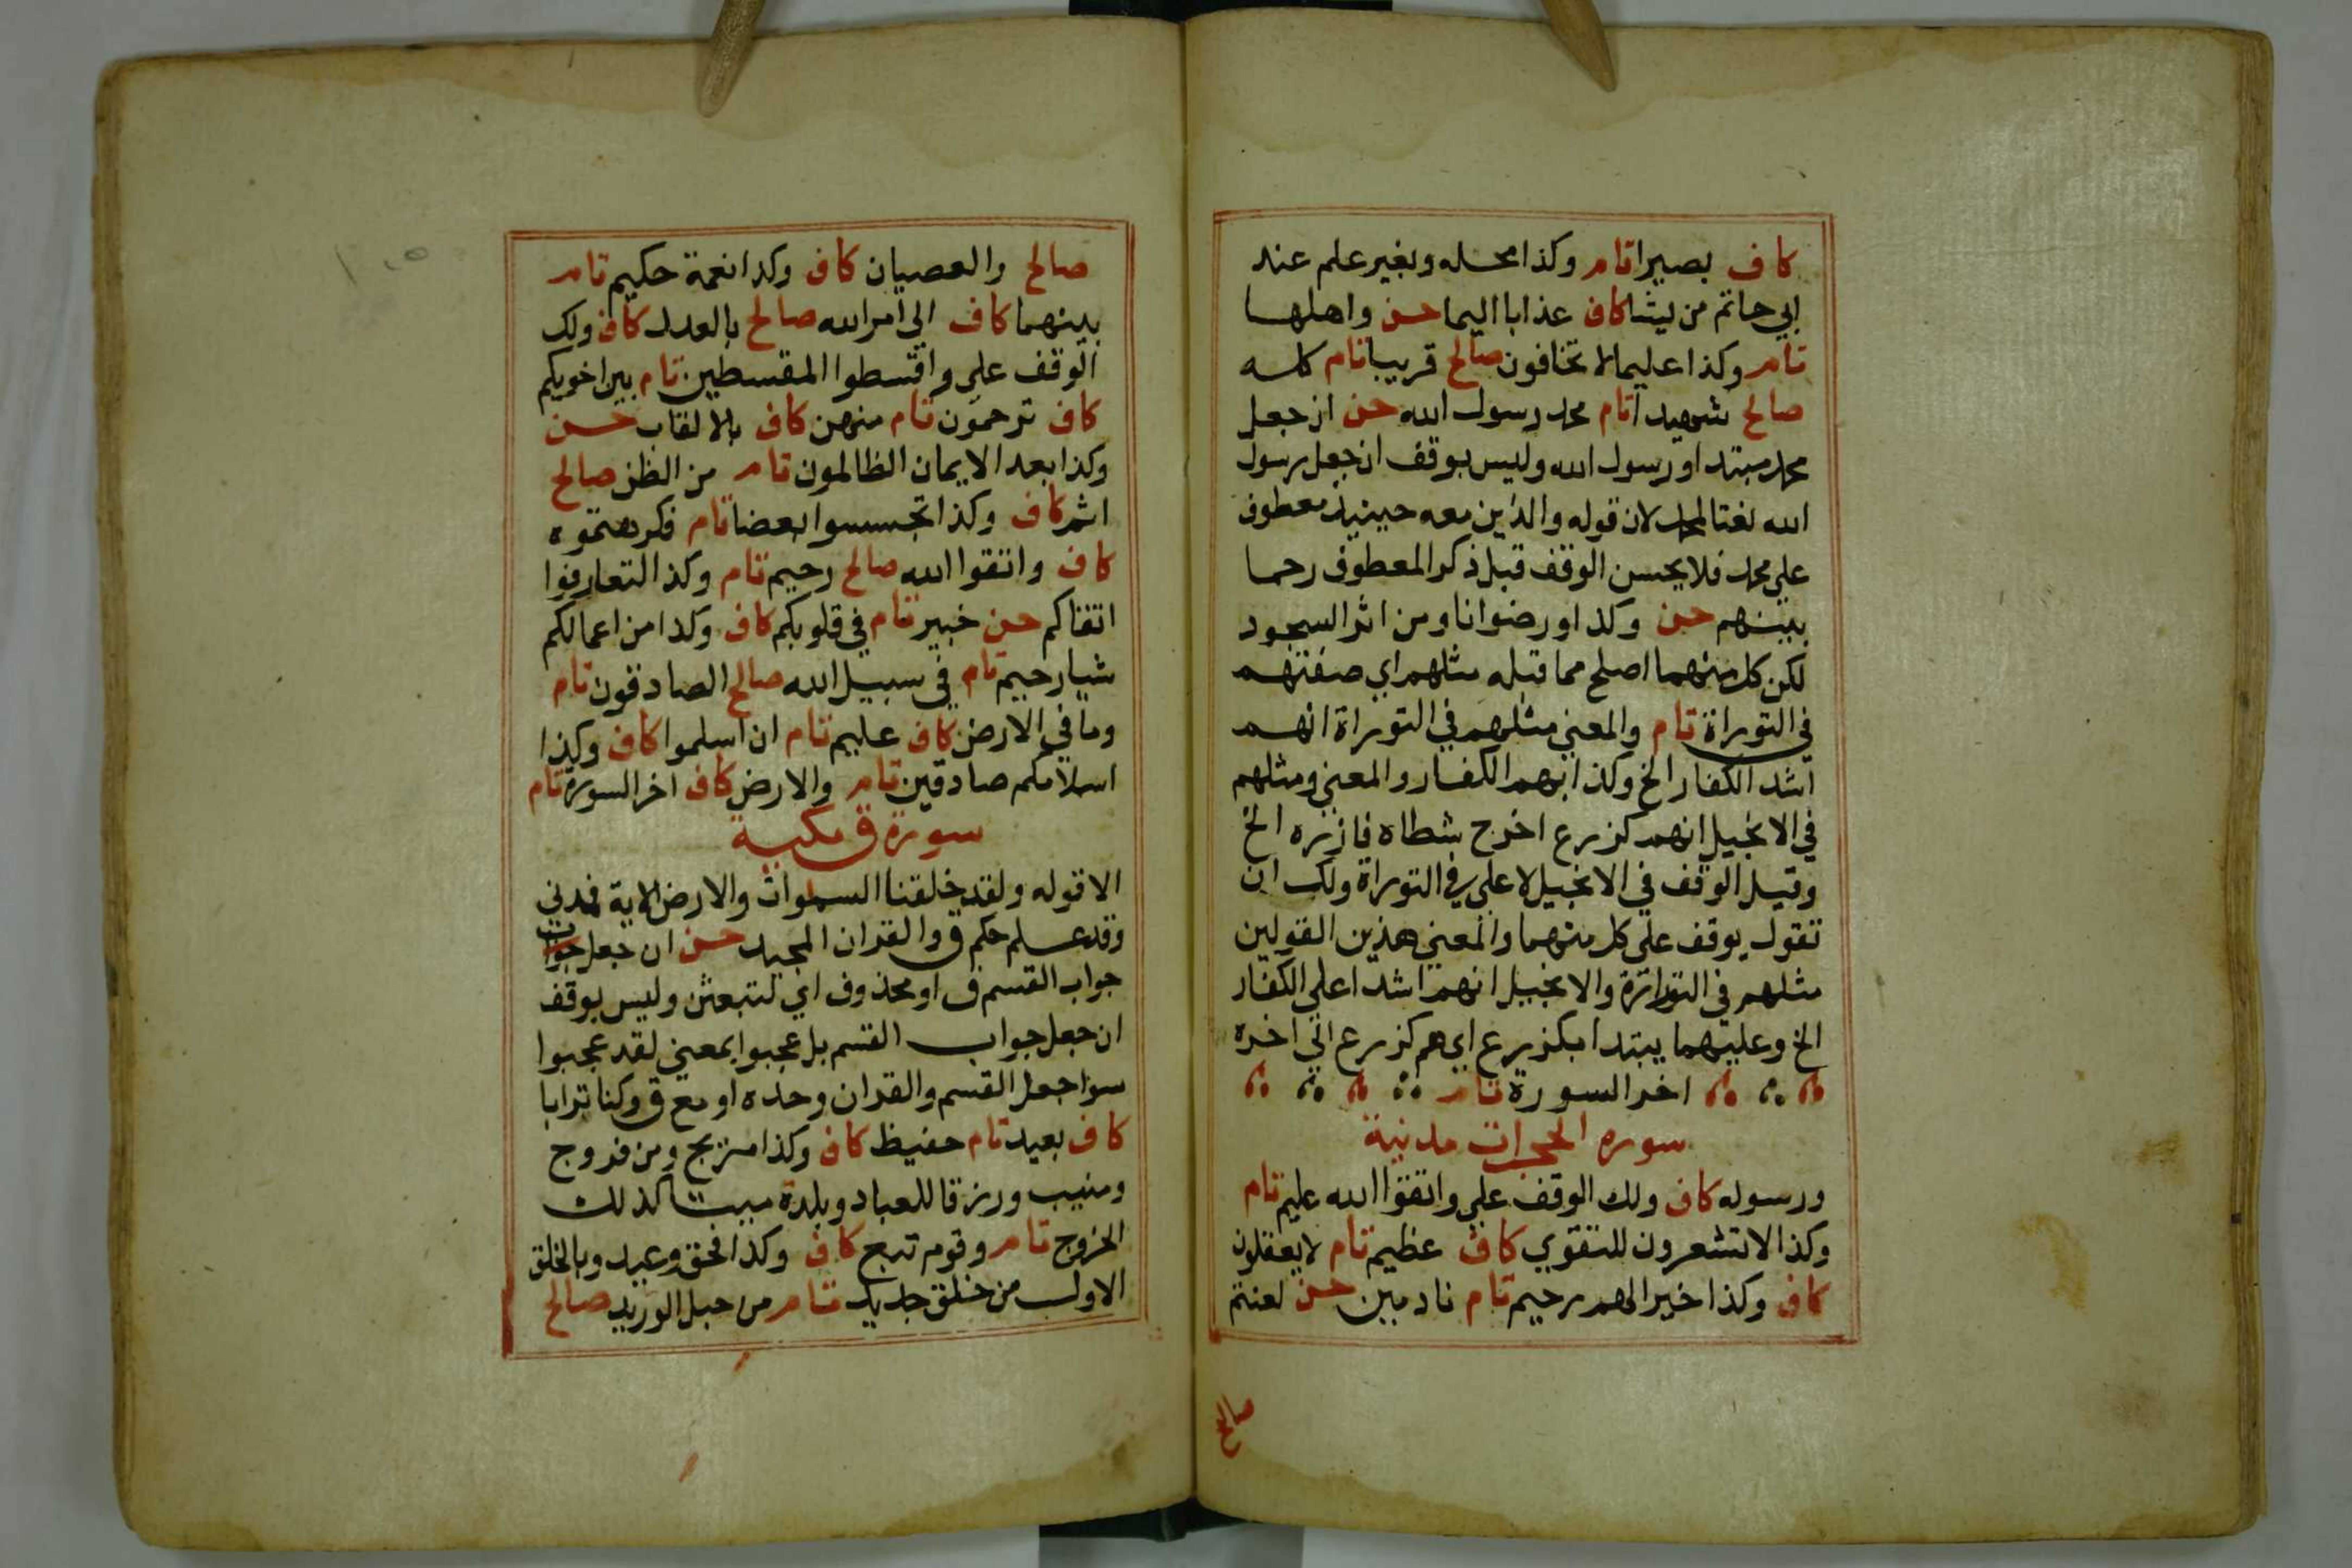 كاف بصيرا تام وكذا محله وبغير علم عند
ابي حاتم من يشا كاف عذابا اليما حسن واهلها
تام وكذا عليما لا تخافون صالح قريبا تام كله
صالح شهيدا تام محمد رسول الله حسن ان جعل
محمد مبتدا ورسول الله وليس بوقف ان جعل رسول
الله نعتا لمحمد لان قوله والذين معه حينيذ معطوف
علي محمد فلا يحسن الوقف قبل ذكر المعطوف رحما
بينهم حسن وكذا ورضوانا ومن اثر السجود
لكن كل منهما اصلح مما قبله مثلهم اي صفتهم
في التوراة تام والمعني مثلهم في التوراة انهم
اشد الكفار الخ وكذا بهم الكفار والمعني ومثلهم
في الانجيل انهم كزرع اخرج شطاه فازره الخ
وقيل الوقف في الانجيل لا علي في التوراة ولك ان
تقول يوقف علي كل منهما والمعني هذين القولين
مثلهم في التوراة والانجيل انهم اشدا علي الكفار
الخ وعليهما يبتدا بكزرع اي هم كزرع الي اخره
اخر السورة تام
سوره الحجرات مدنية
ورسوله كاف ولك الوقف علي واتقوا الله عليم تام
وكذا لا تشعرون للتقوي كاف عظيم تام لا يعقلون
كاف وكذا خيرا لهم رحيم تام نادمين حسن لعنتم
صالح
صالح والعصيان كاف وكذا نعمة حكيم تام
بينهما كاف الي امر الله صالح بالعدل كاف ولك
الوقف علي واقسطوا المقسطين تام بين اخويكم
كاف ترحمون تام منهن كاف بالالقاب حسن
وكذا بعد الايمان الظالمون تام من الظن صالح
اثم كاف وكذا تجسسوا بعضا تام فكرهتموه
كاف واتقوا الله صالح رحيم تام وكذا لتعارفوا
اتقاكم حسن خبير تام في قلوبكم كاف وكذا من اعمالكم
شيا رحيم تام في سبيل الله صالح الصادقون تام
وما في الارض كاف عليم تام ان اسلموا كاف وكذا
اسلامكم صادقين تام والارض كاف اخر السورة تام
سورة ق مكية
الا قوله ولقد خلقنا السموات والارض الاية فمدني
وقد علم حكم ق والقران المجيد حسن ان جعل جواب
جواب القسم ق او محذوف اي لتبعثن وليس بوقف
ان جعل جواب القسم بل عجبوا بمعني لقد عجبوا
سوا جعل القسم والقران وحده او مع ق وكنا ترابا
كاف بعيد تام حفيظ كاف وكذا مريج ومن فروج
ومنيب ورزقا للعباد وبلدة ميتا كذلك
الخروج تام وقوم تبع كاف وكذا فحق وعيد وبالخلق
الاول من خلق جديد تام من حبل الوريد صالح